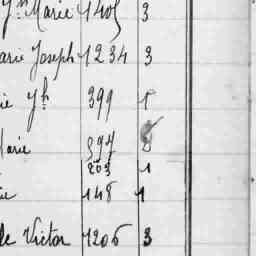 Marie 1405 3
arie Joseph 1234 3
ie Jh 399 1
Marie 397
203 1
ie 148 1
de Victor 1206 3